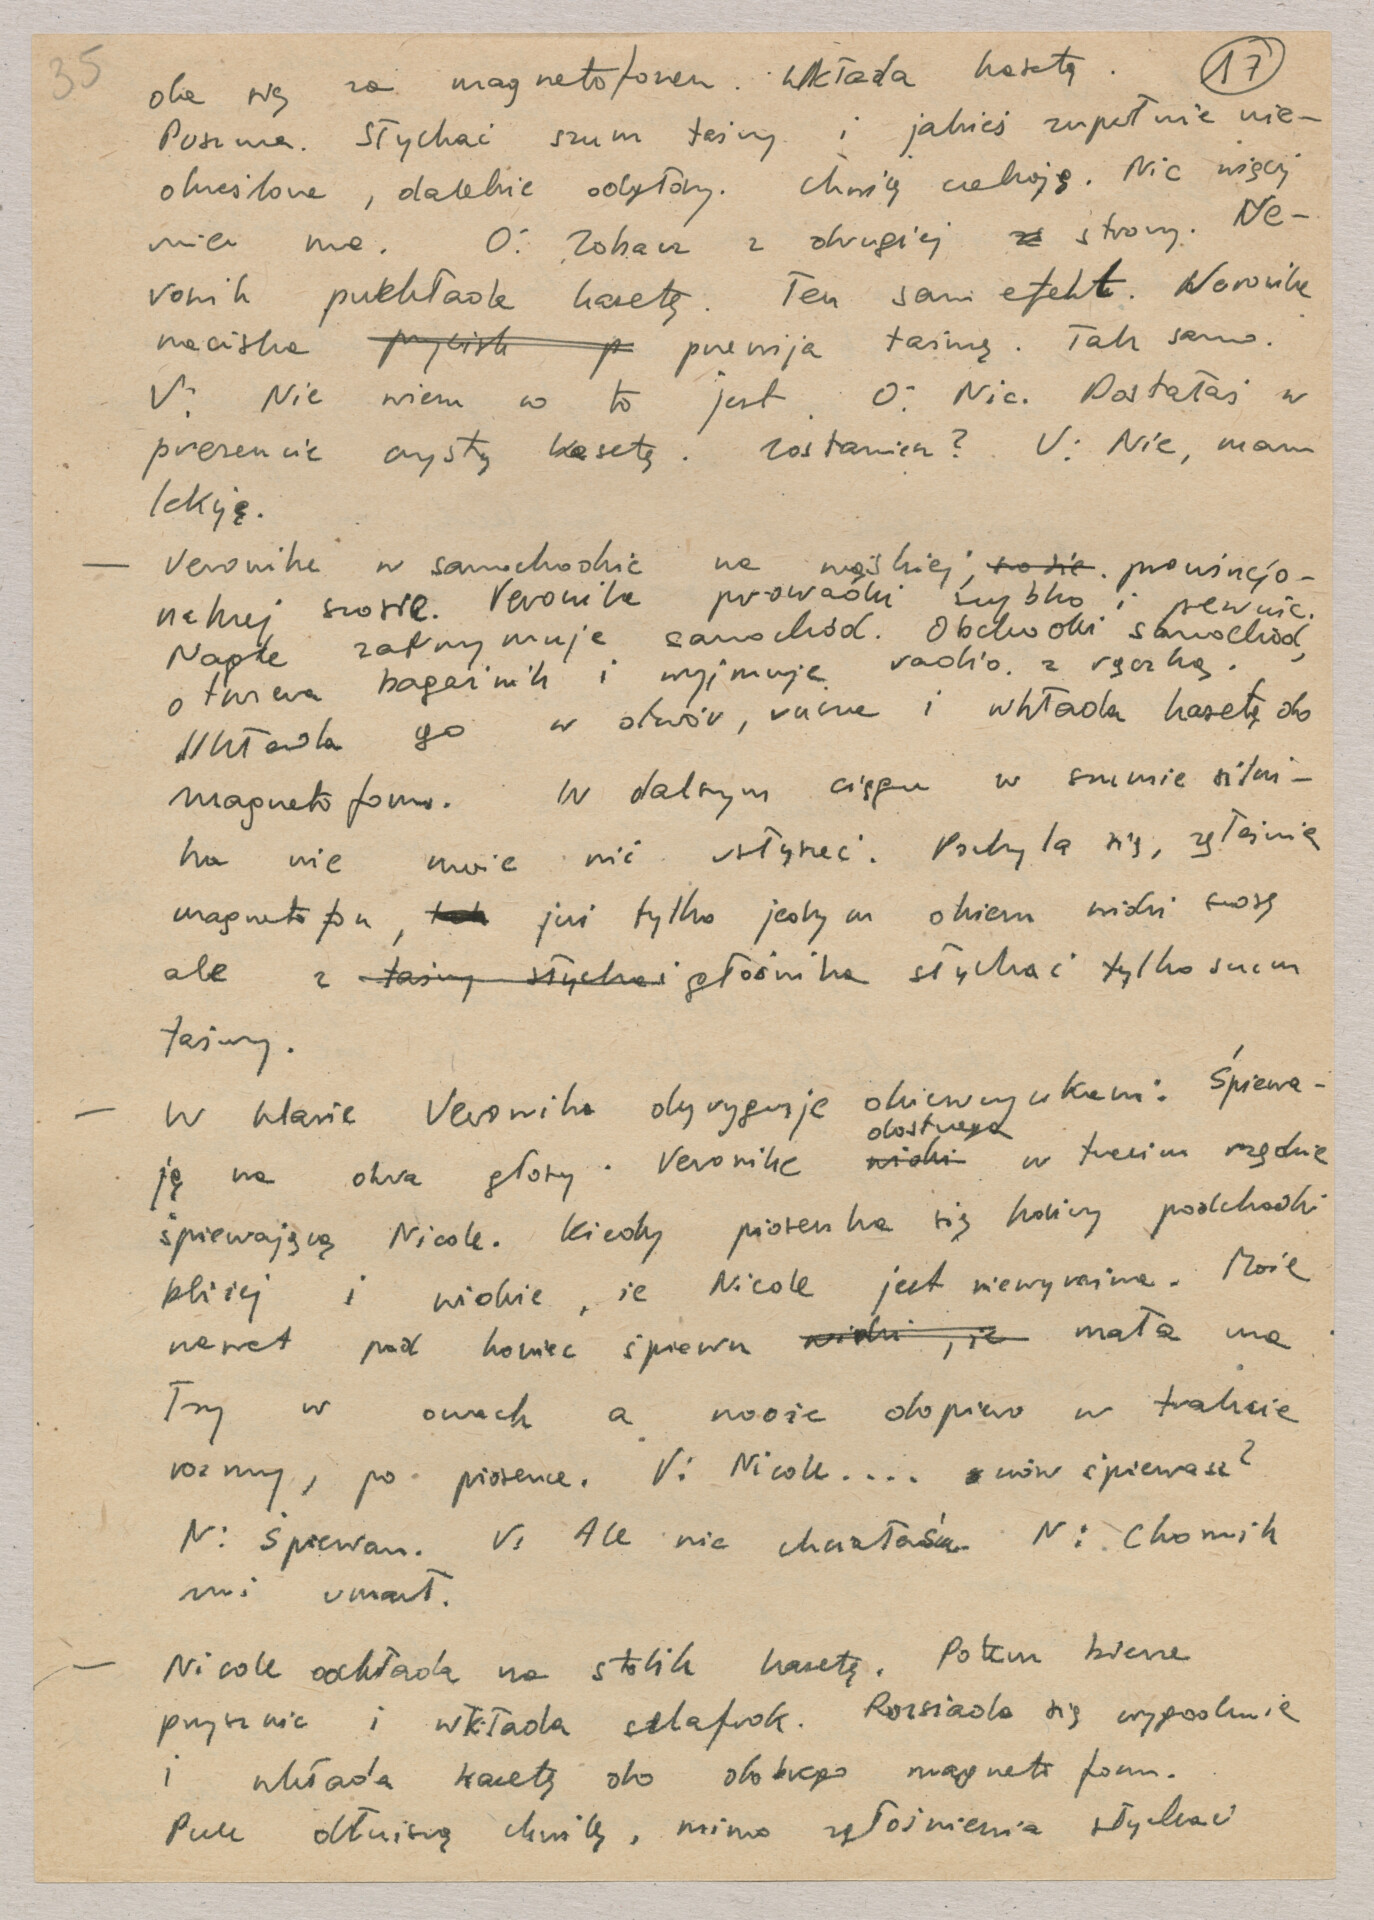 35
17
da się za magnetofonem. Wkłada kasetę.
Puszcza. Słychać szum taśmy i jakieś zupełnie nie-
określone, dalekie odgłosy. Chwilę czekają. Nic więcej
nie ma. O: Zobacz z drugiej ze strony. We-
ronik przekłada kasetę. Ten sam efekt. Weronika
naciska przycisk p przewija taśmę. Tak samo.
V: Nie wiem co to jest. O: Nic. Dostałaś w
prezencie czystą kasetę. Zostaniesz? V: Nie, mam
lekcję.
— Veronika w samochodzie na wąskiej, szosie. prowincjo-
nalnej szosie. Veronika prowadzi szybko i pewnie.
Nagle zatrzymuje samochód. Obchodzi samochód,
otwiera bagażnik i wyjmuje radio z rączką.
Wkłada go w otwór, rusza i wkłada kasetę do
magnetofonu. W dalszym ciągu w szumie silni-
ka nie może nic usłyszeć. Pochyla się, zgłaśnia
magnetofon, tak już tylko jednym okiem widzi szosę
ale z taśmy słychać głośnika słychać tylko szum
taśmy.
— W klasie Veronika dyryguje dziewczynkami. Śpiewa-
dostrzega
ją na dwa głosy. Veronika widzi w trzecim rzędzie
śpiewającą Nicole. Kiedy piosenka się kończy podchodzi
bliżej i widzi, że Nicole jest niewyraźna. Może
nawet pod koniec śpiewu widzi, że mała ma
łzy w oczach a może dopiero w trakcie
rozmowy, po piosence. V: Nicole.... znów śpiewasz?
N: Śpiewam. V: Ale nie chciałaś. N: Chomik
mi umarł.
— Nicole odkłada na stolik kasetę. Potem bierze
prysznic i wkłada szlafrok. Rozsiada się wygodnie
i wkłada kasetę do dobrego magnetofonu.
Przez dłuższą chwilę, mimo zgłośnienia słychać